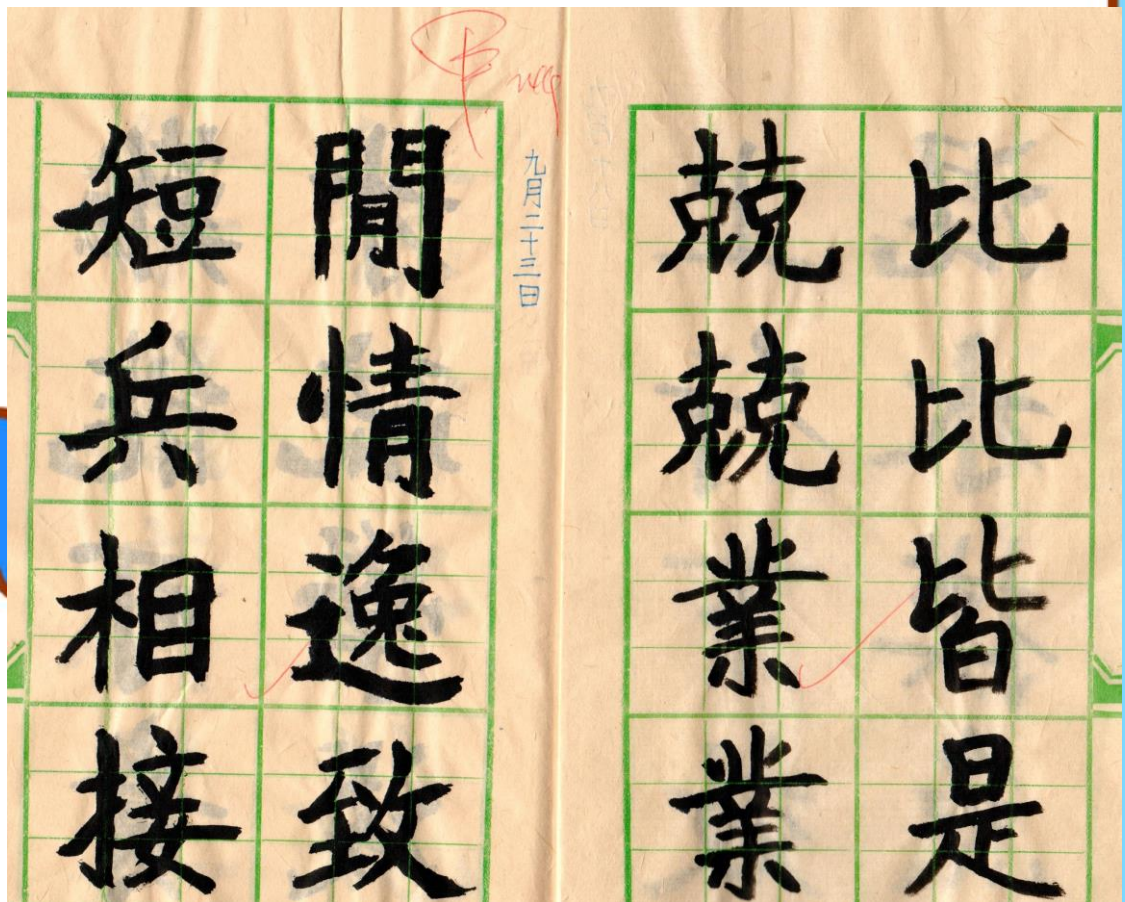 比比皆是
兢兢業業
九月二十三日
閒情逸致
短兵相接